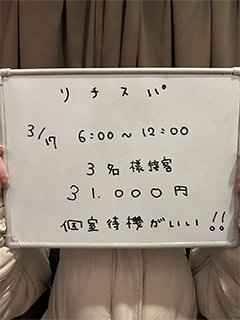 リチスパ
3/17 6:00〜12:00
3名様接客
31.000円
個室待機がいい!!